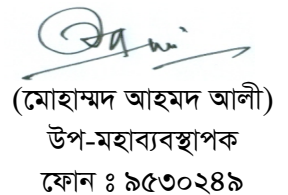 (মোহাম্মদ আহমদ আলী)
উপ-মহাব্যবস্থাপক
ফোন ঃ ৯৫৩০২৪৯